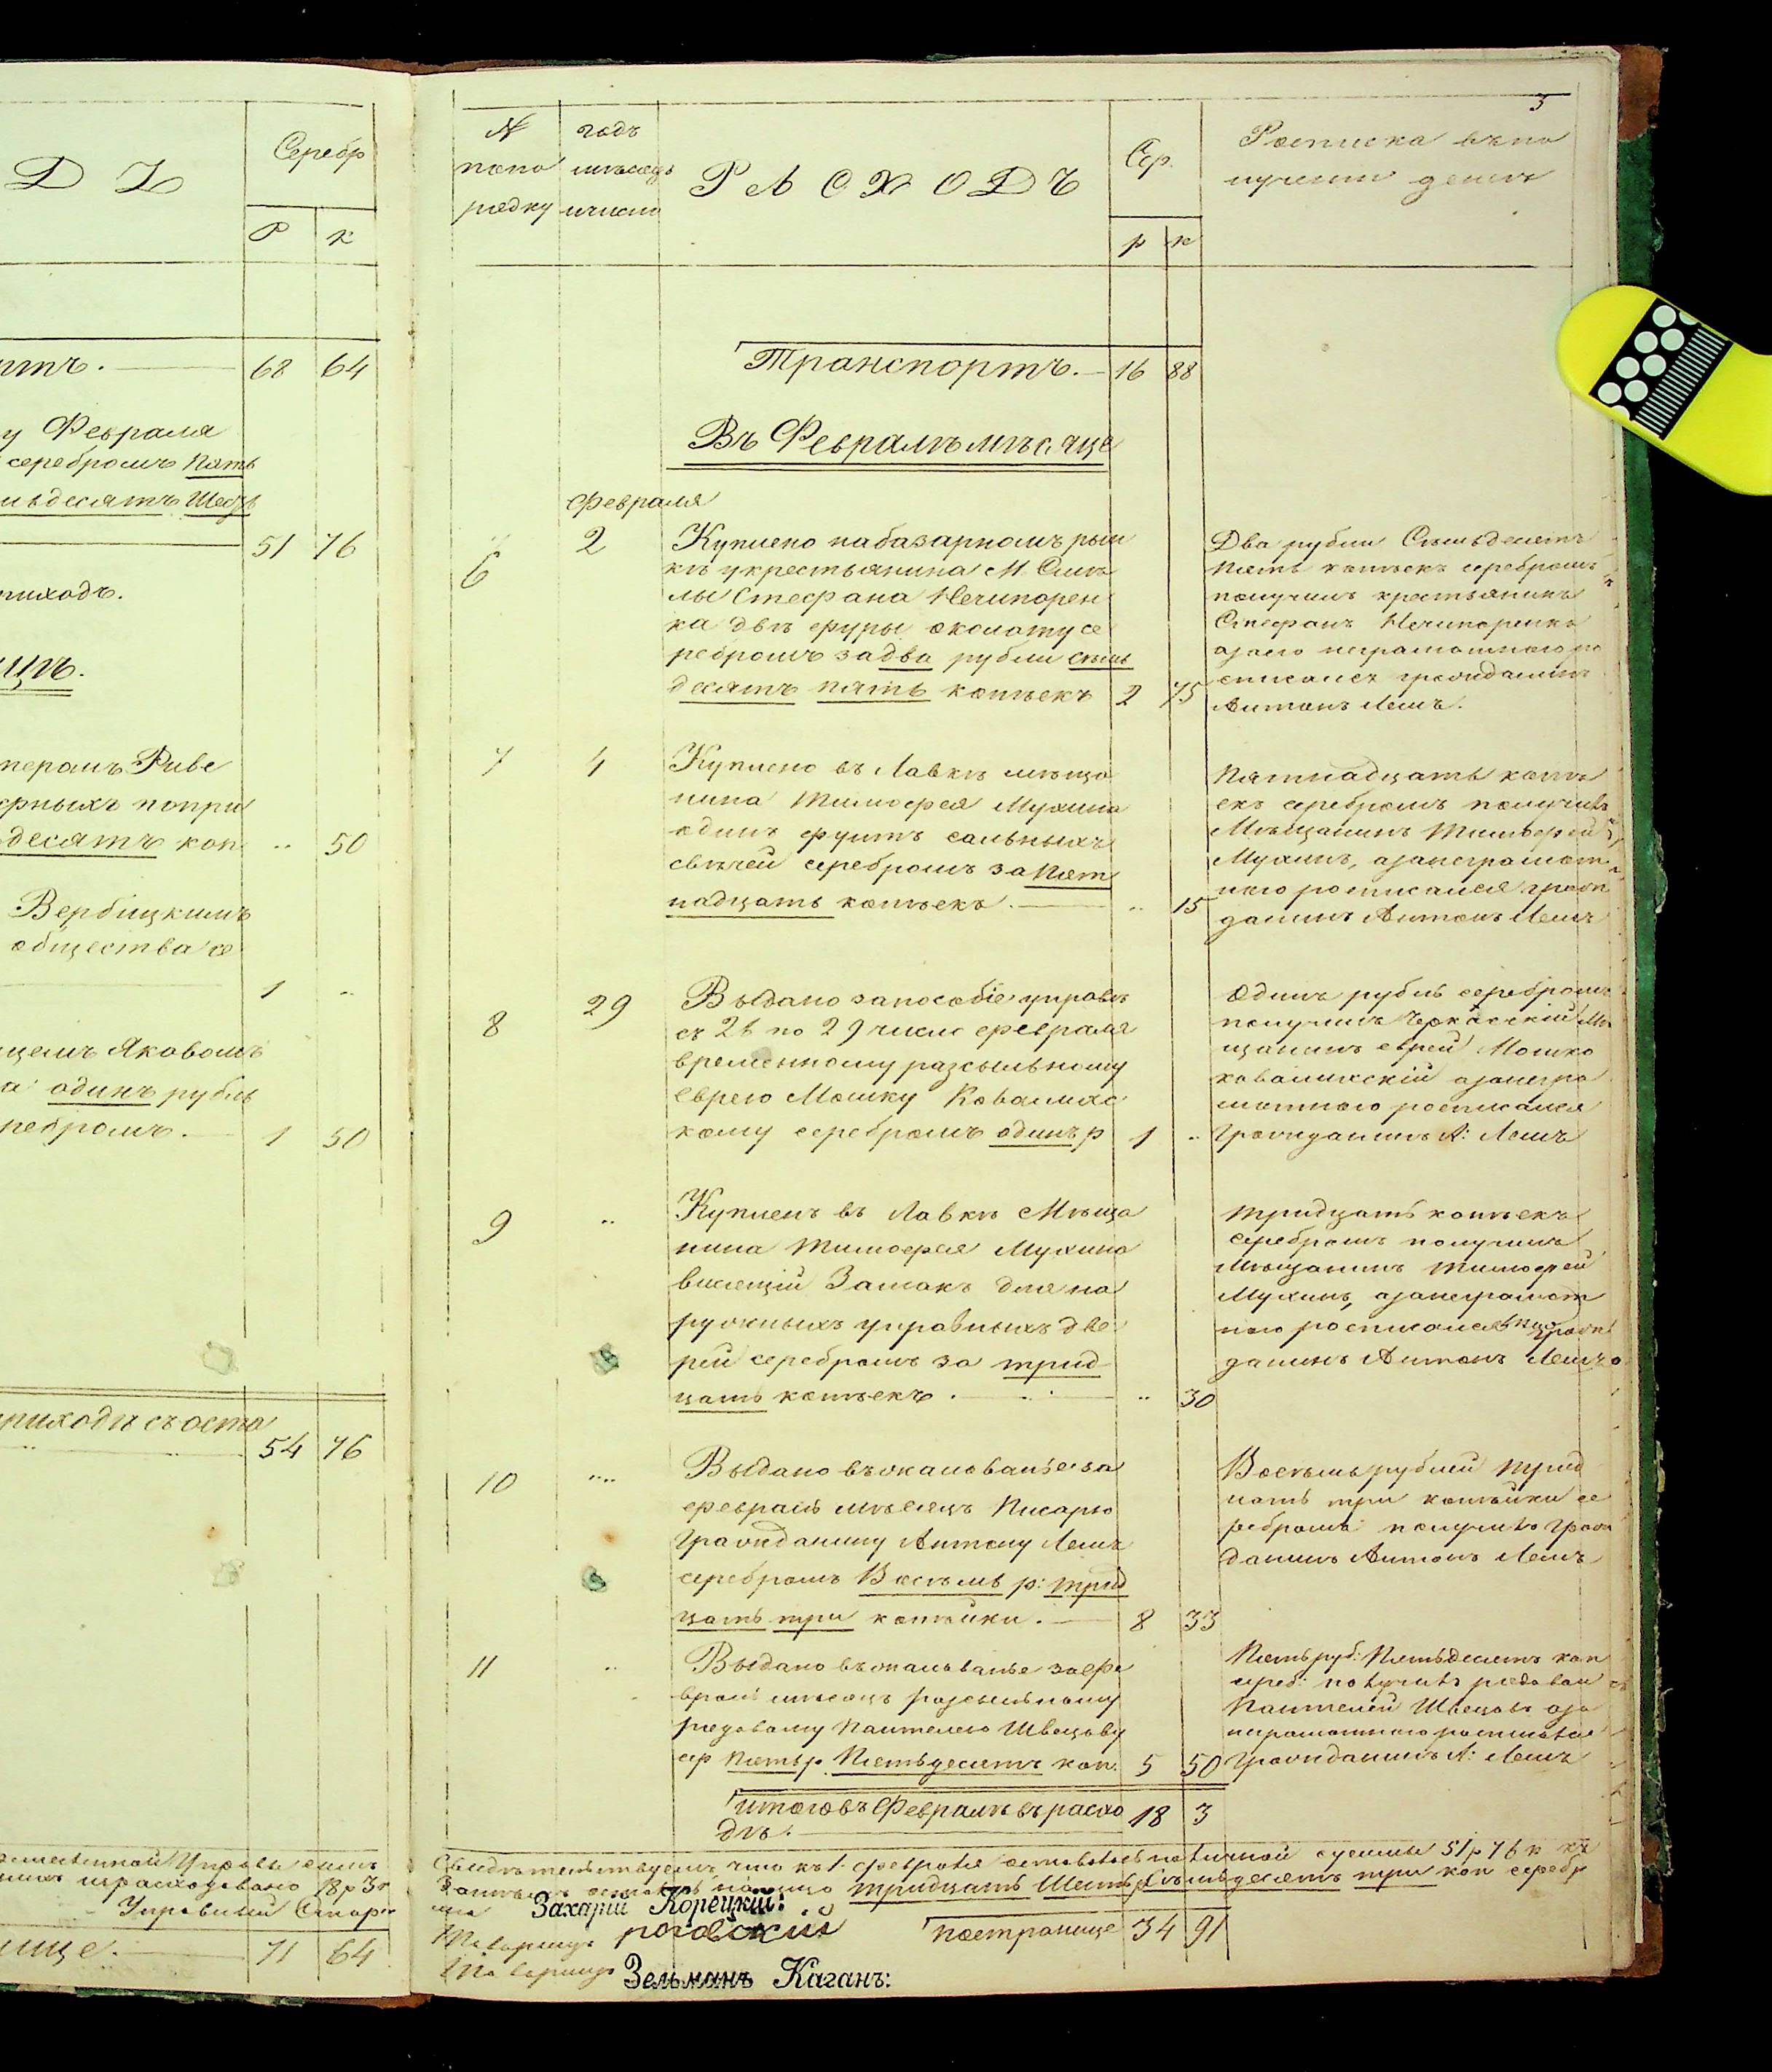 Д Ъ
Серебр
Р к
ртъ. 68 64
у Февраля
серебромъ Пять
мьдесятъ Шесть
51 76
приходъ.
цѣ.
перомъ Риве
ерныхъ попри
десятъ коп. .. 50
Вербицкимъ
общества се
1 ..
цемъ Яковомъ
а одинъ рубль
ребромъ. 1 50
приходѣ съ оста
54 76
израсходовано 18 р 3 к
Управный Старо
нице. 71 64
3
№ попо рядку
годъ мѣсяцъ и число
РАСХОДЪ
Сер.
р к
Росписка въ по
лученіи денегъ
Транспортъ. 16 88
Въ Февралѣ мѣсяце
Февраля
6 2 Куплено на базарномъ рын
кѣ у крестьянина М. Смѣ
лы Стефана Нечипорен
ка двѣ фуры околоту се
ребромъ за два рубли семь
десятъ пять копѣекъ 2 75
Два рубли Семьдесятъ
пять копѣекъ серебромъ
получилъ крестьянинъ
Стефанъ Нечипоренко
а за его неграмотного ро
списался гражданинъ
Антонъ Лемъ.
7 4 Куплено въ Лавкѣ мѣща
нина Тимофея Мухина
одинъ фунтъ сальныхъ
свѣчей серебромъ за Пят
надцать копѣекъ. .. 15
Пятнадцать копѣ
екъ серебромъ получилъ
Мѣщанинъ Тимофей
Мухинъ, а за неграмот
ного росписался граж
данинъ Антонъ Лемъ
8 29 Выдано за пособіе управѣ
съ 26 по 29 число февраля
временному разсыльному
Еврею Мошку Ковалівс
кому серебромъ одинъ р 1 ..
Один рубль серебромъ
получилъ Черкасскій Мѣ
щанинъ еврей Мошко
ковалівскій а за негра
мотного росписался
гражданинъ А: Лемъ
9 .. Купленъ въ Лавкѣ Мѣща
нина Тимофея Мухина
висящій Замокъ для на
ружныхъ управныхъ две
рей серебромъ за трид
цать копѣекъ. .. 30
тридцать копѣекъ
серебромъ получилъ
Мѣщанинъ Тимофей
Мухинъ, а за неграмот
ного росписался граж
данинъ Антонъ Лемъ
10 .... Выдано въ жалованье за
февраль мѣсяцъ Писарю
Гражданину Антону Лемъ
серебромъ Восемь р: трид
цать три копѣйки. 8 33
Восемь рублей трид
цать три копѣйки се
ребромъ получилъ граж
данинъ Антонъ Лемъ
11 .. Выдано въ жалованье за Фе
враль мѣсяцъ разсыльному
рядовому Пантелею Швецову
сер Пять р. Пятьдесятъ коп. 5 50
Пять руб: Пятьдесятъ коп
сереб: получилъ рядовой
Пантелей Швецовъ а за
неграмотного росписался
гражданинъ А: Лемъ
Итого въ Февралѣ въ расхо
дѣ. 18 3
Свидѣтельствуемъ что къ 1. февраля оставалось наличной суммы 51 р 76 к
Затѣмъ остаетъ тридцать Шесть р Семьдесятъ три коп серебр
Захарій Корецкій:
Товарищъ роговскій
Товарищъ Зельманъ Каганъ:
По странице 34 91